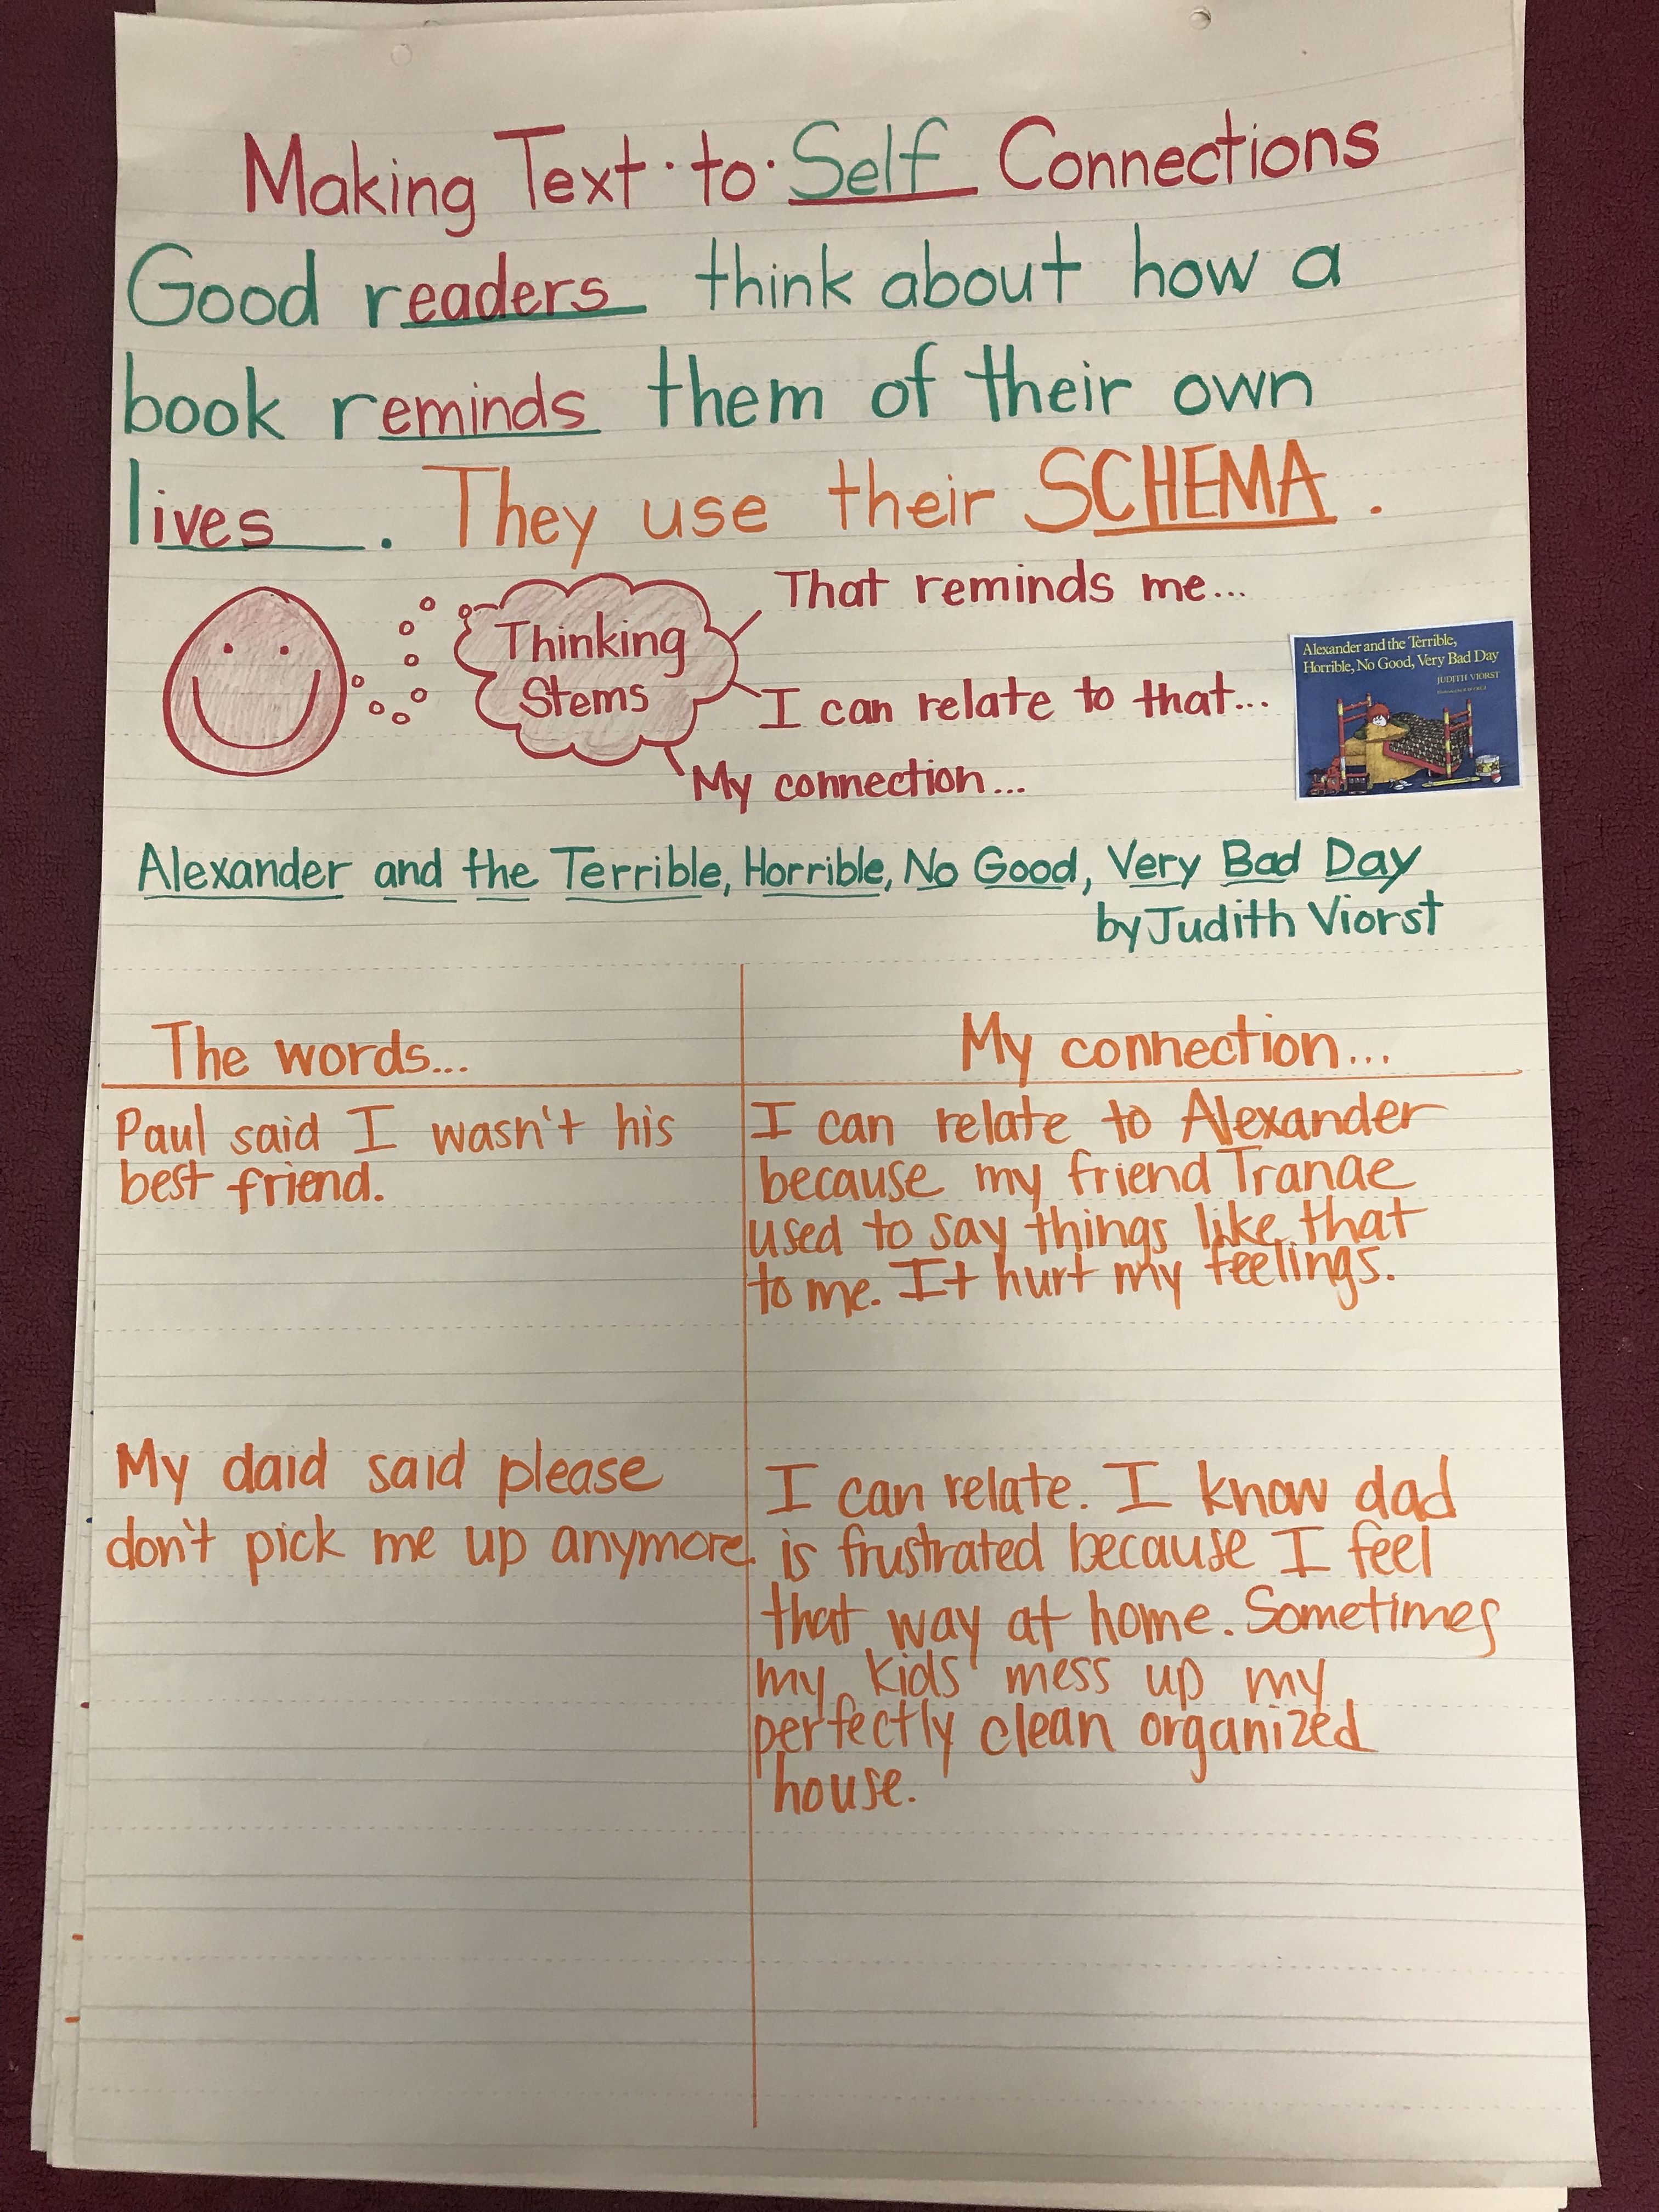 Making Text·to·Self Connections
Good readers think about how a
book reminds them of their own
lives. They use their SCHEMA.
Thinking
Stems
That reminds me...
I can relate to that...
My connection...
Alexander and the Terrible,
Horrible, No Good, Very Bad Day
JUDITH VIORST
Alexander and the Terrible, Horrible, No Good, Very Bad Day
by Judith Viorst
The words...
Paul said I wasn't his
best friend.
My daid said please
don't pick me up anymore.
My connection...
I can relate to Alexander
because my friend Tranae
used to say things like that
to me. It hurt my feelings.
I can relate. I know dad
is frustrated because I feel
that way at home. Sometimes
my kids mess up my
perfectly clean organized
house.